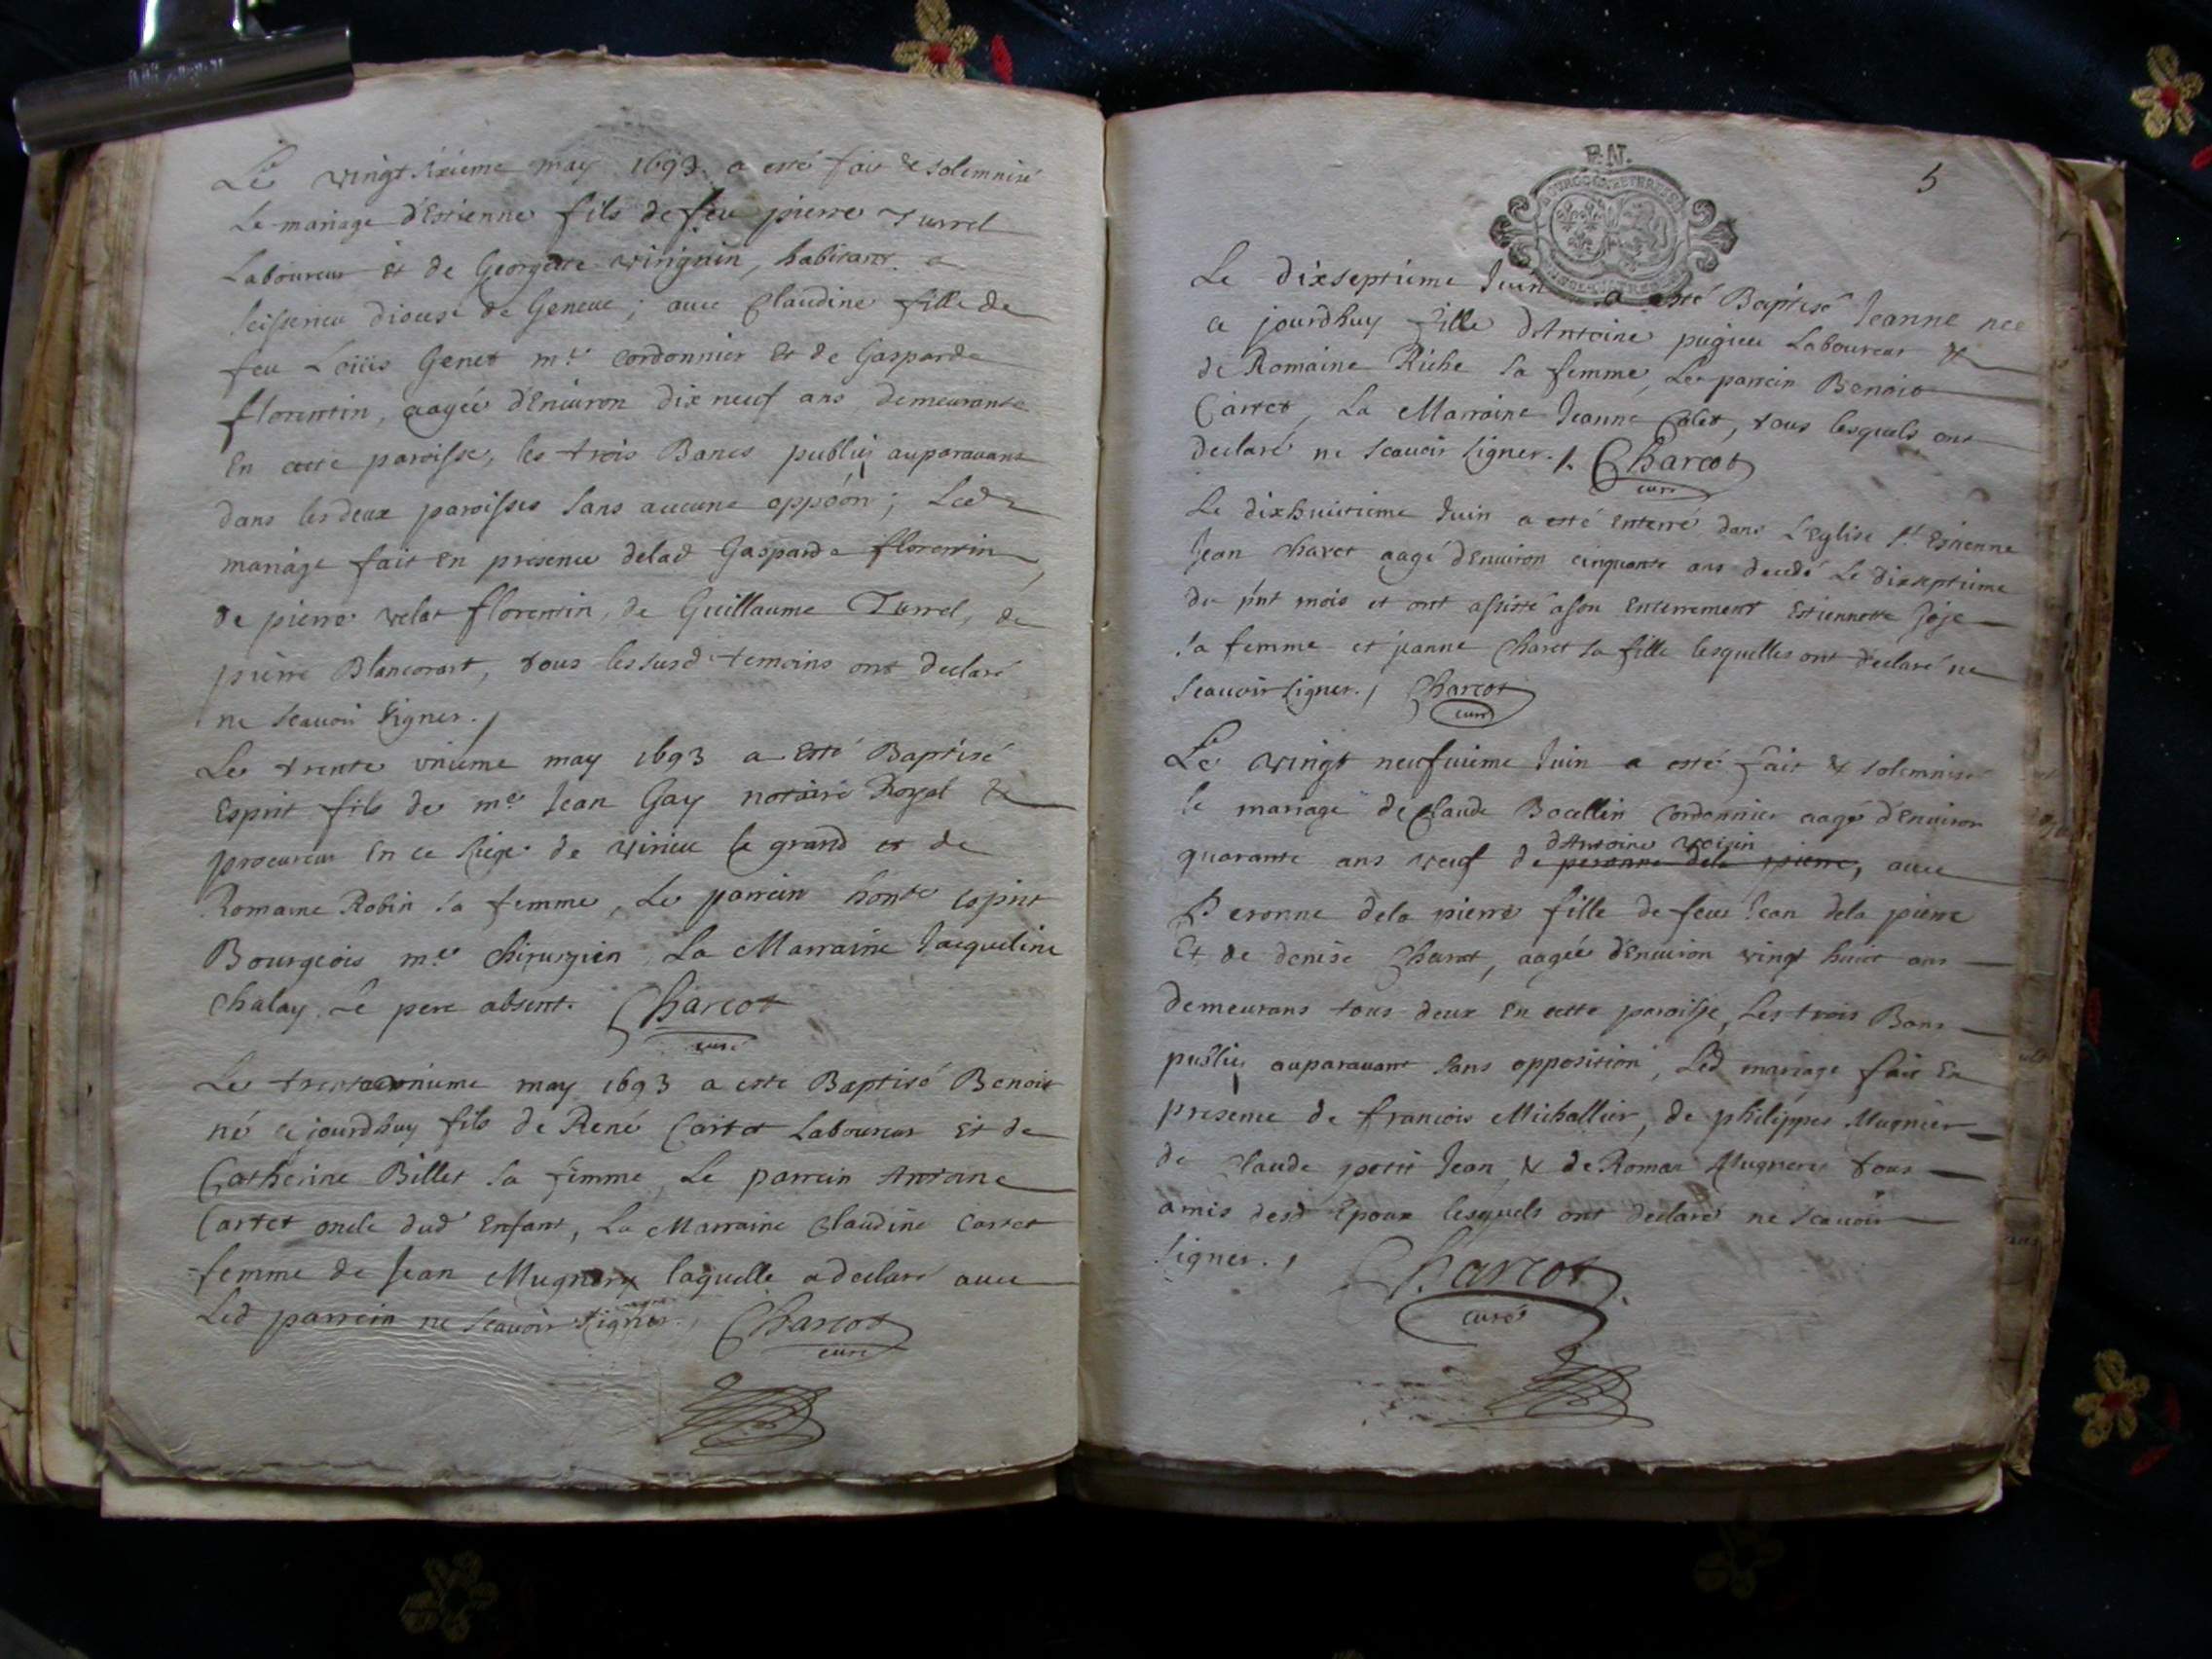 Le vingt sixieme may 1693 a esté fait & solemnisé
Le mariage d'Estienne fils de feu pierre Turrel
Laboureur et de Georgette vinguin, habitant a
Seisserieu diocese de Geneve; avec Claudine fille de
feu Loüis Genet me cordonnier et de Gasparde
florentin, aagée d'Environ dix neuf ans demeurante
En cette paroisse, les trois Bancs publiés auparavant
dans les deux paroisses sans aucune oppoön; Led
mariage fait en presence delad Gasparde florentin,
de pierre velat florentin, de Guillaume Turrel, de
pierre Blancorart, tous les susd temoins ont declaré
ne scavoir signer./
Le trente vnieme may 1693 a esté Baptisé
Esprit fils de me Jean Gay notaire Royal &
procureur En ce siege de virieu le grand et de
Romaine Robin sa femme, Le parrein honte Esprit
Bourgeois me chirurgien, La Marraine Jacqueline
Chalay, Le pere absent. Charcot
curé
Le vnieme may 1693 a esté Baptisé Benoit
né cejourdhuy fils de René Cartet Laboureur Et de
Catherine Billet sa femme, Le parrein Antoine
Cartet oncle dud Enfant, La Marraine Claudine Cartet
femme de Jean laquelle a declaré avec
Led parrein ne scavoir signer. Charcot
curé
P.N.
5
Le dixseptieme Juin a esté Baptisé Jeanne née
ce jourdhuy fille d'Antoine pugieu Laboureur &
de Romaine Riche sa femme, Le parrein Benoit
Cartet, La Marraine Jeanne Calet, tous lesquels ont
declaré ne scavoir signer./. Charcot
curé
Le dixhuitieme Juin a esté Enterré dans L'Eglise St Estienne
Jean Charet aagé d'Environ cinquante ans decedé Le dixseptieme
du pnt mois et ont assisté a son Enterrement Estiennette
sa femme et jeanne Charet sa fille lesquelles ont declaré ne
scavoir signer./ Charcot
curé
Le vingt neufvieme Juin a esté fait & solemnisé
le mariage de Claude Bocellin Cordonnier aagé d'Environ
d'Antoine voisin
quarante ans veuf de peronne dela pierre, avec
Peronne dela pierre fille de feu Jean dela pierre
Et de denise Charet, aagée d'Environ vingt huit ans
demeurans tous deux En cette paroisse, Les trois Bans
publiés auparavant sans opposition, Led mariage fait En
presence de francois Michallier, de philippes Mugnier
de Claude petit Jean, & de Roman tous
amis desd Epoux lesquels ont declaré ne scavoir
signer./ Charcot
curé